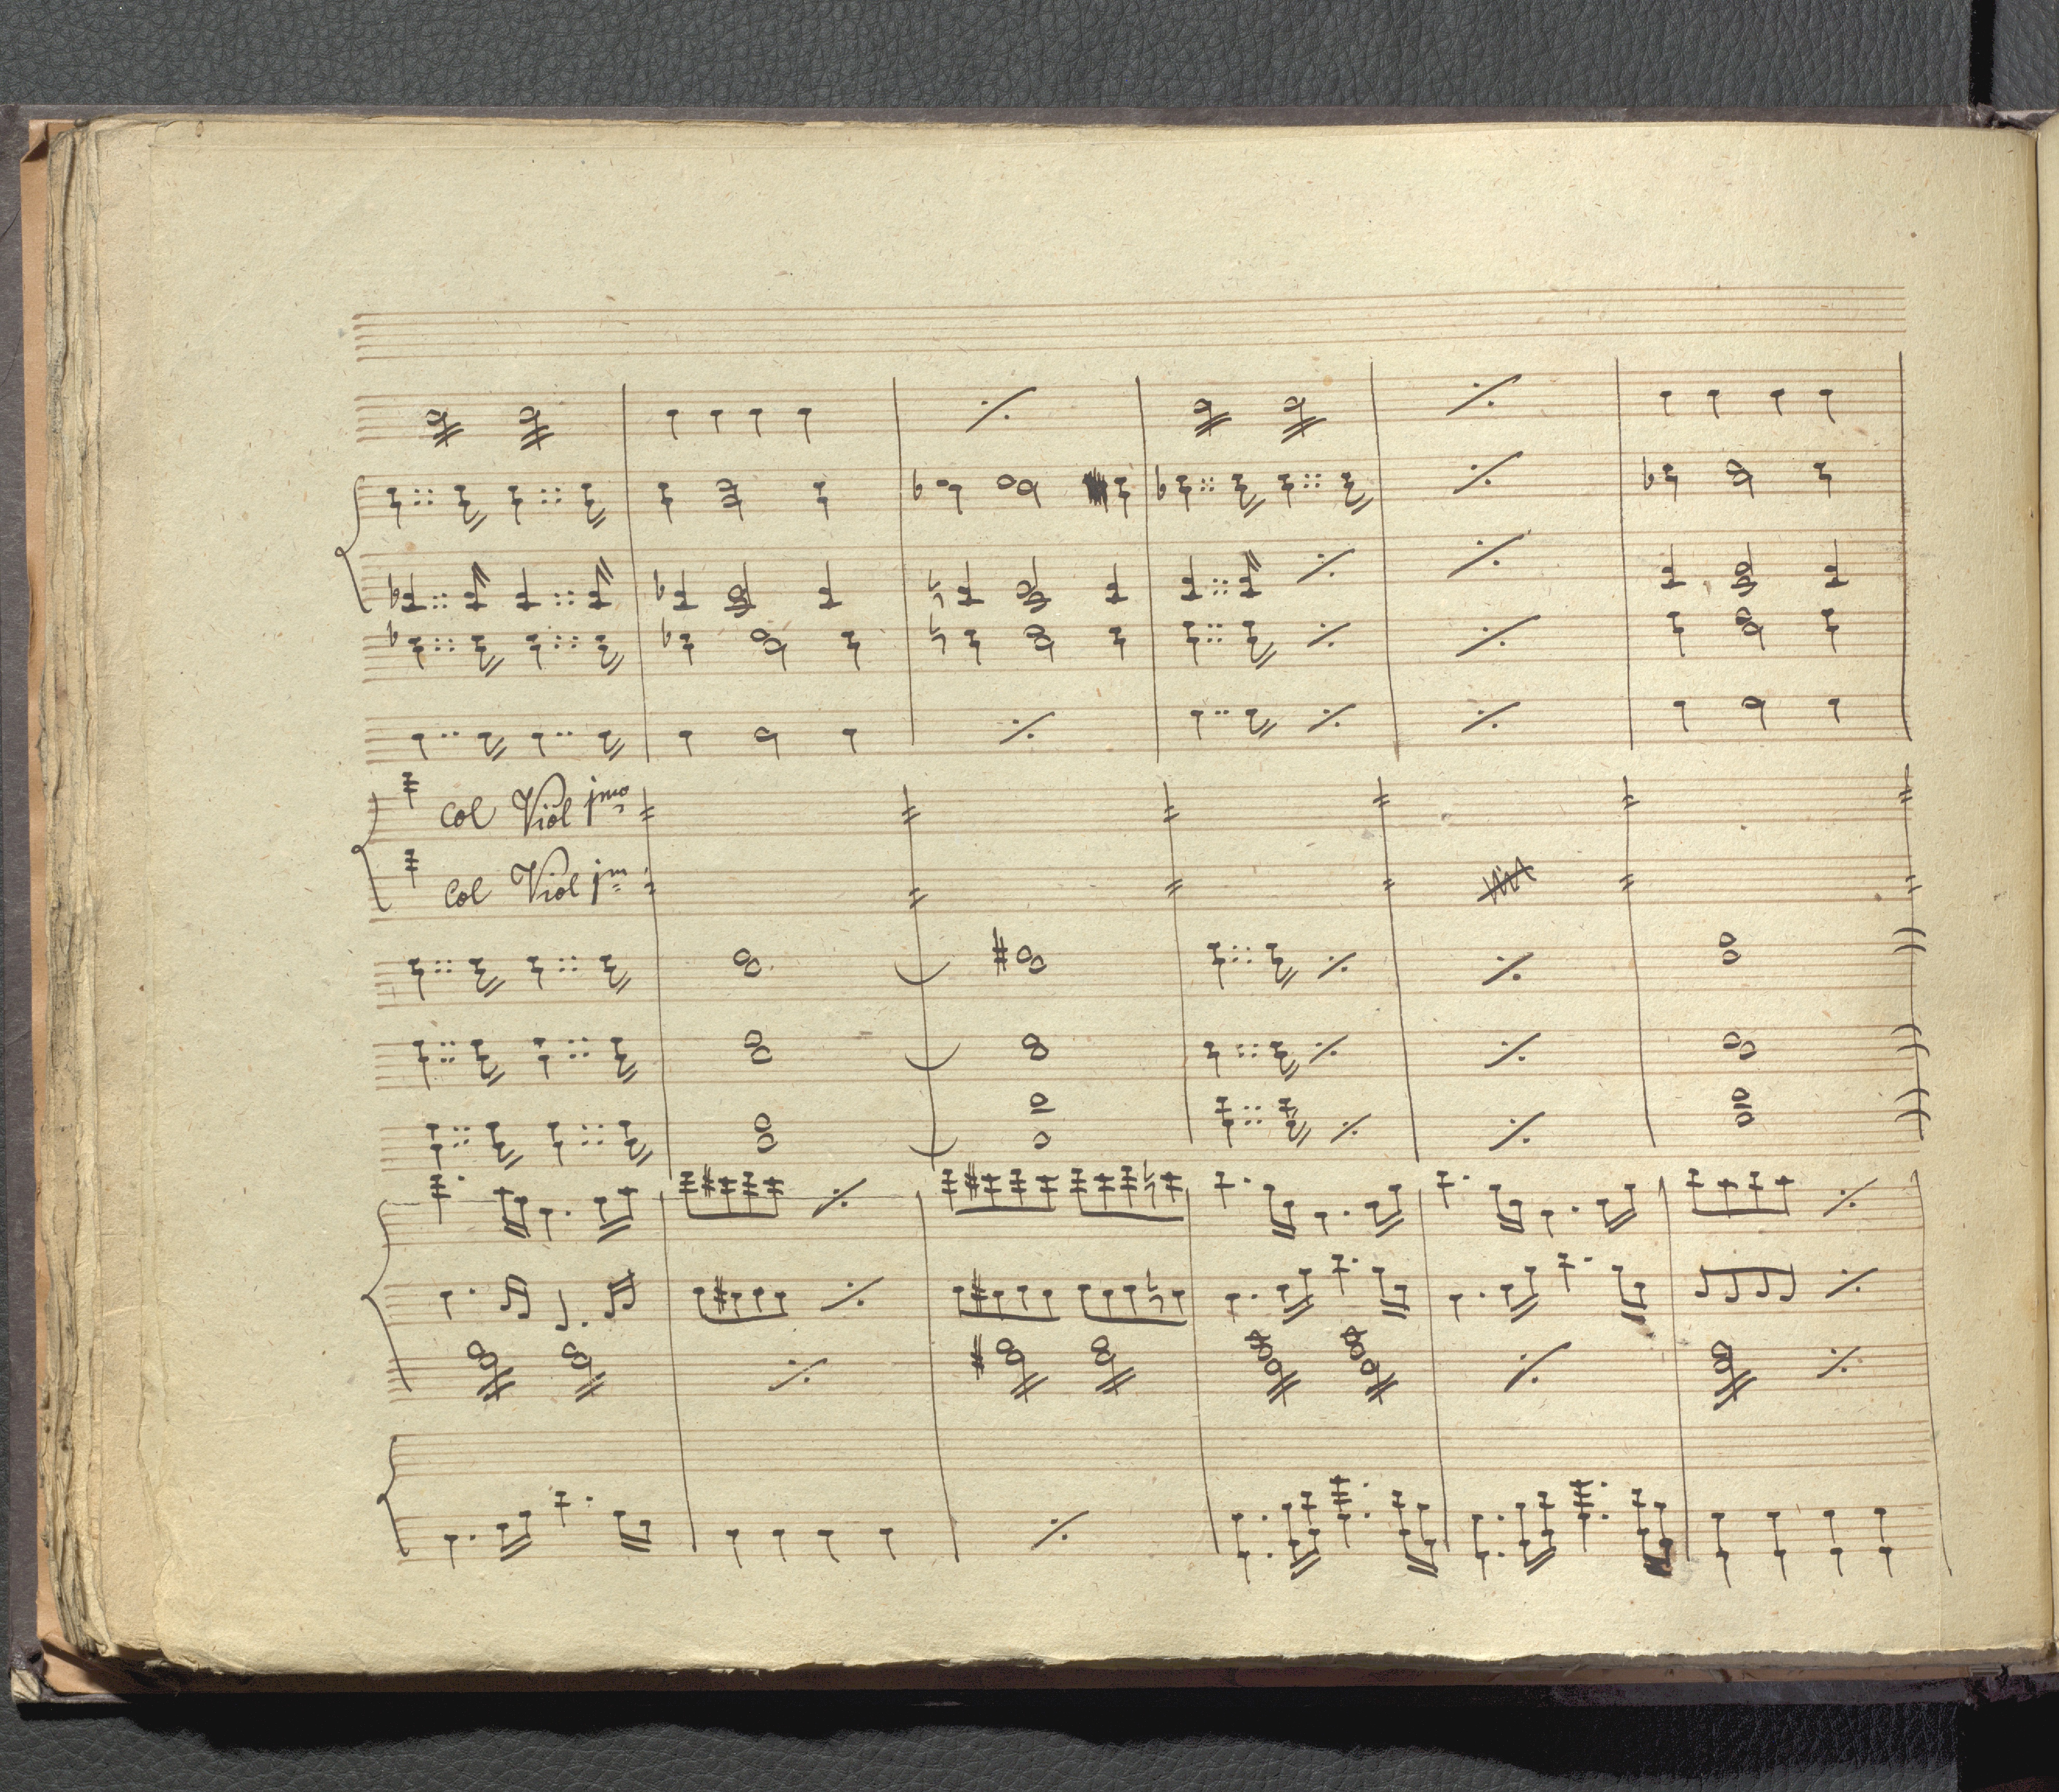 Col Viol jmo
Col Viol jm